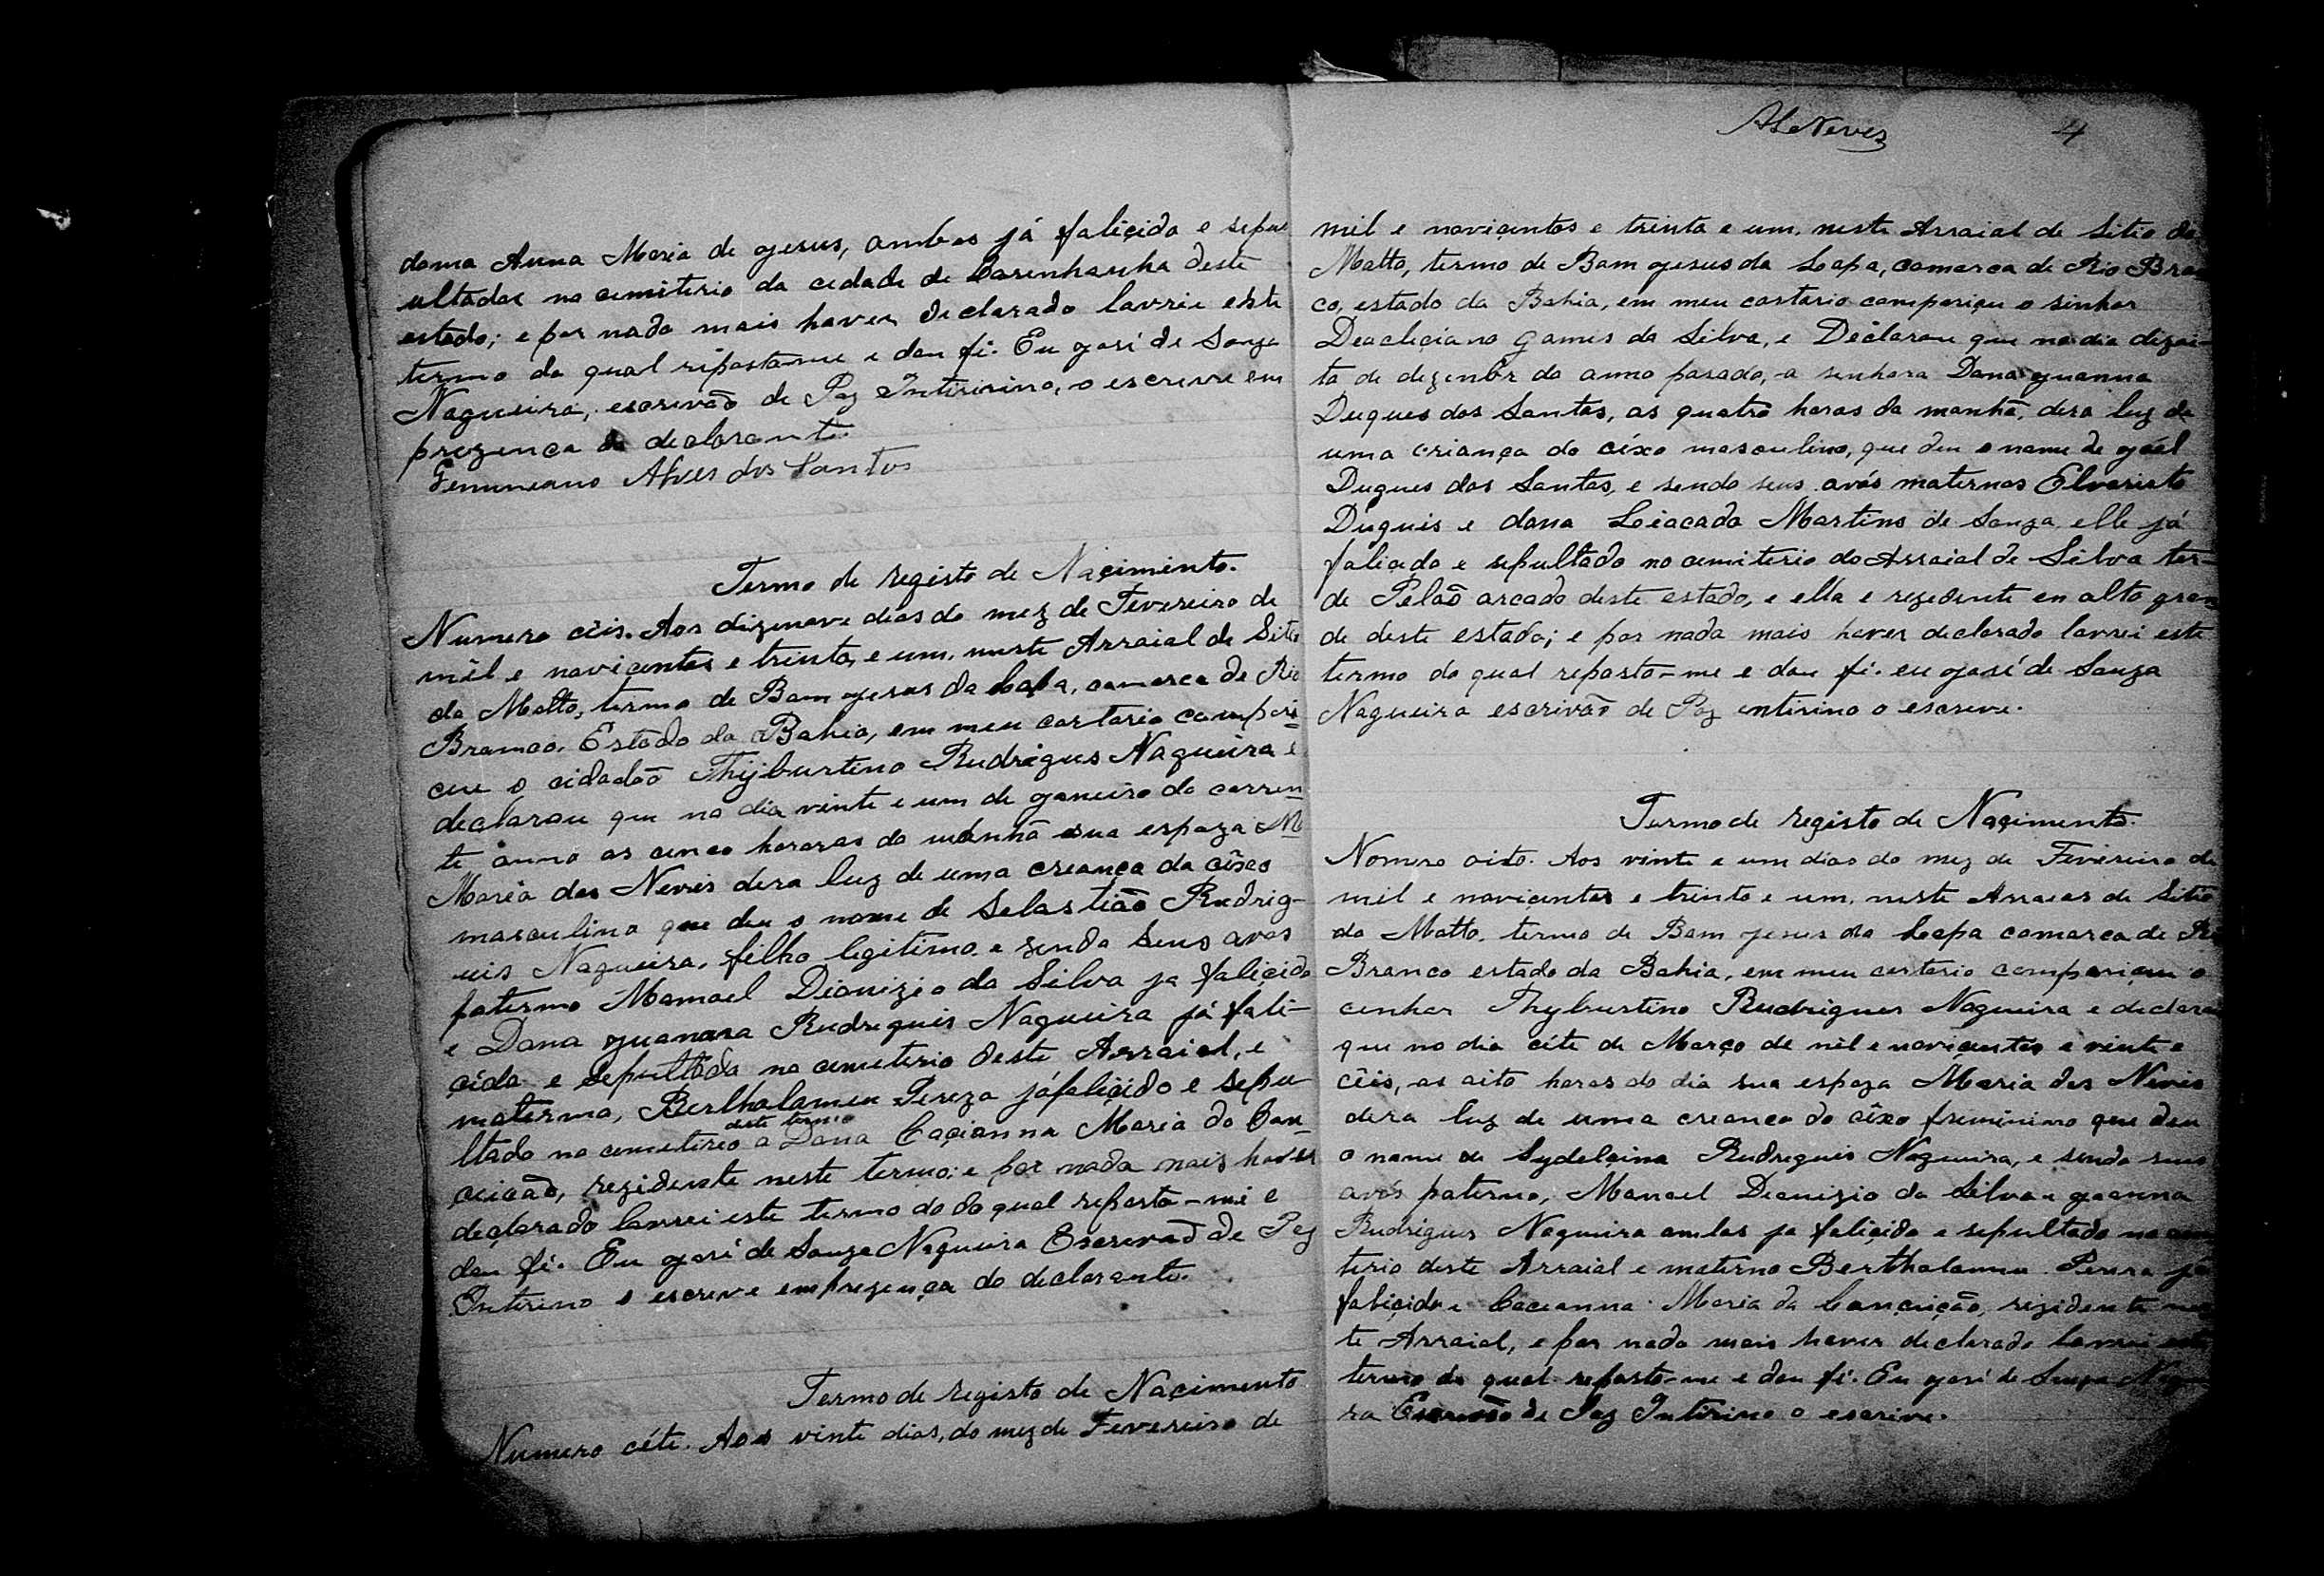 dona Anna Maria de Jesus, ambos já faliçido e sepu
ultados no cemiterio da cedade de Carinhanha deste
estado; e por nada mais haver declarado lavrie este
termo do qual riposto-me e dou fé. Eu José de Souza
Nogueira, escrevão de Paz Intiririno, o escrevre em
prezença do declarante.
Geminiano Alves dos Santos
Termo de registo de Naçimento.
Numero cêis. Aos dizenove dias do mez de Fevereiro de
mil e noviçentos e trinta, e um, neste Arraial de Sitio
do Matto, termo de Bom Jesus da Lapa, comarca de Rio
Branco. Estado da Bahia, em meu cartorio compari
ceu o cidadão Thijburtino Rudrigues Nogueira e
declarou que no dia vinte e um de Janeiro do corren
te anno as cinco horaras da manhã sua espoza M
Maria das Neves dera luz de uma creança do cêxo
masculino que deu o nome de Sebastião Rudrig-
uis Nogueira, filho legitimo e sendo seus avos
paterno Manoel Dionizio da Silva ja faliçido
e Dona Juanna Rudreguis Nogueira já fali-
çida e sepultada no cemeterio deste Arraial, e
materno, Berthalameu Pereza já faliçido e sepu-
deste termo
ltado no cemeterio a Dona Caçianna Maria da Con-
ceicaõ, rezidente neste termo; e por nada mais haver
declarado lavrei este termo do do qual reposto-me e
dou fé. Eu José de Souza Nogueira Escrevaõ de Paz
Intirino o escreve em prezença do declarante.
Termo de registo de Naçimento
Numero céte. Aos vinte dias, do mez de Fevereiro de
ALeNeves 4
mil e noviçentos e trinta e um, neste Arraial de Sitio do
Matto, termo de Bom Jesus da Loapa, comarca de Rio Bran
co, estado da Bahia, em meu cartorio compariçeu o sinhor
Deacleçiano Gomes da Silva, e Déclarou que no dia dizoi-
to de dezenbr do anno pasado, a senhora Dona Juanna
Duques dos Santos, as quatro horas da manhã, dera luz de
uma criança do céixo masculino, que deu o nome de Joél
Duques dos Santos, e sendo seus avós maternos Elvaristo
Duquis e dona Leocada Martins de Souza, elle já
falicido e sepultado no cemiterio do Arraial de Silva ter-
de Pelaõ arcado deste estado, e ella e rezedente en alto gran
de deste estado; e por nada mais haver declarado lavrei este
termo do qual reposto-me e dou fé. eu José de Souza
Nogueira escrivaõ de Paz entirino o escreve.
Termo de registo de Naçimento.
Nomero oito. Aos vinte e um dias do mez de Feviereiro de
mil e noviçentos e trinto e um, neste Arraias de Sitio
do Matto, termo de Bom Jesus da Loapa comarca de Rio
Branco estado da Bahia, em meu cartorio compariçeu o
cenhor Thyburtino Rudrigues Nogueira e declarou
que no dia céte de Março de mil e noviçentos e vinte e
cêis, as oito horas do dia sua espoza Maria das Nevis
dera luz de uma creança do cêxo freminino que deu
o nome de Sydelçina Rudreguis Nogueira, e sendo seus
avós paterno, Manoel Dionizio da Silva e Joanna
Rudrigues Nogueira ambos ja faliçido e sepultado no cemi
terio deste Arraial e materno Berthalameu Perera já
faliçido e Caceanna Maria da Conçeição, rezidente nes
te Arraial, e por nada mais haver declarado lavrei este
termo do qual reposto-me e dou fé. Eu José de Souza Noguei
ra Escrivão de Paz Intirino o escrive.